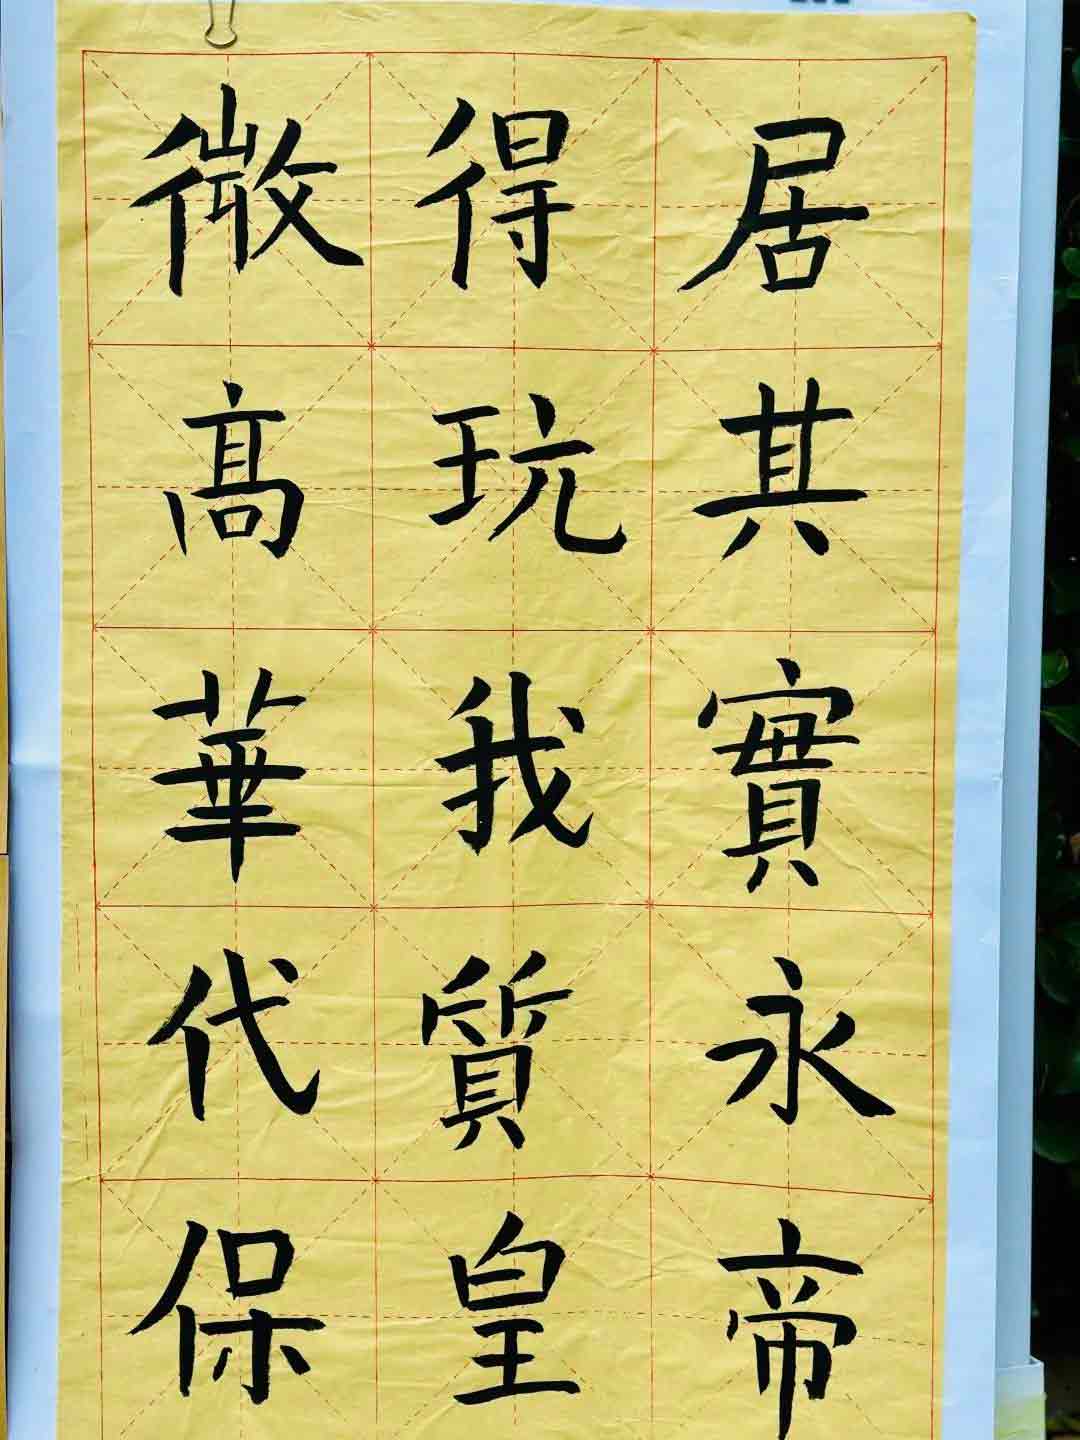 居其實永帝
得玩我質皇
微髙華代保